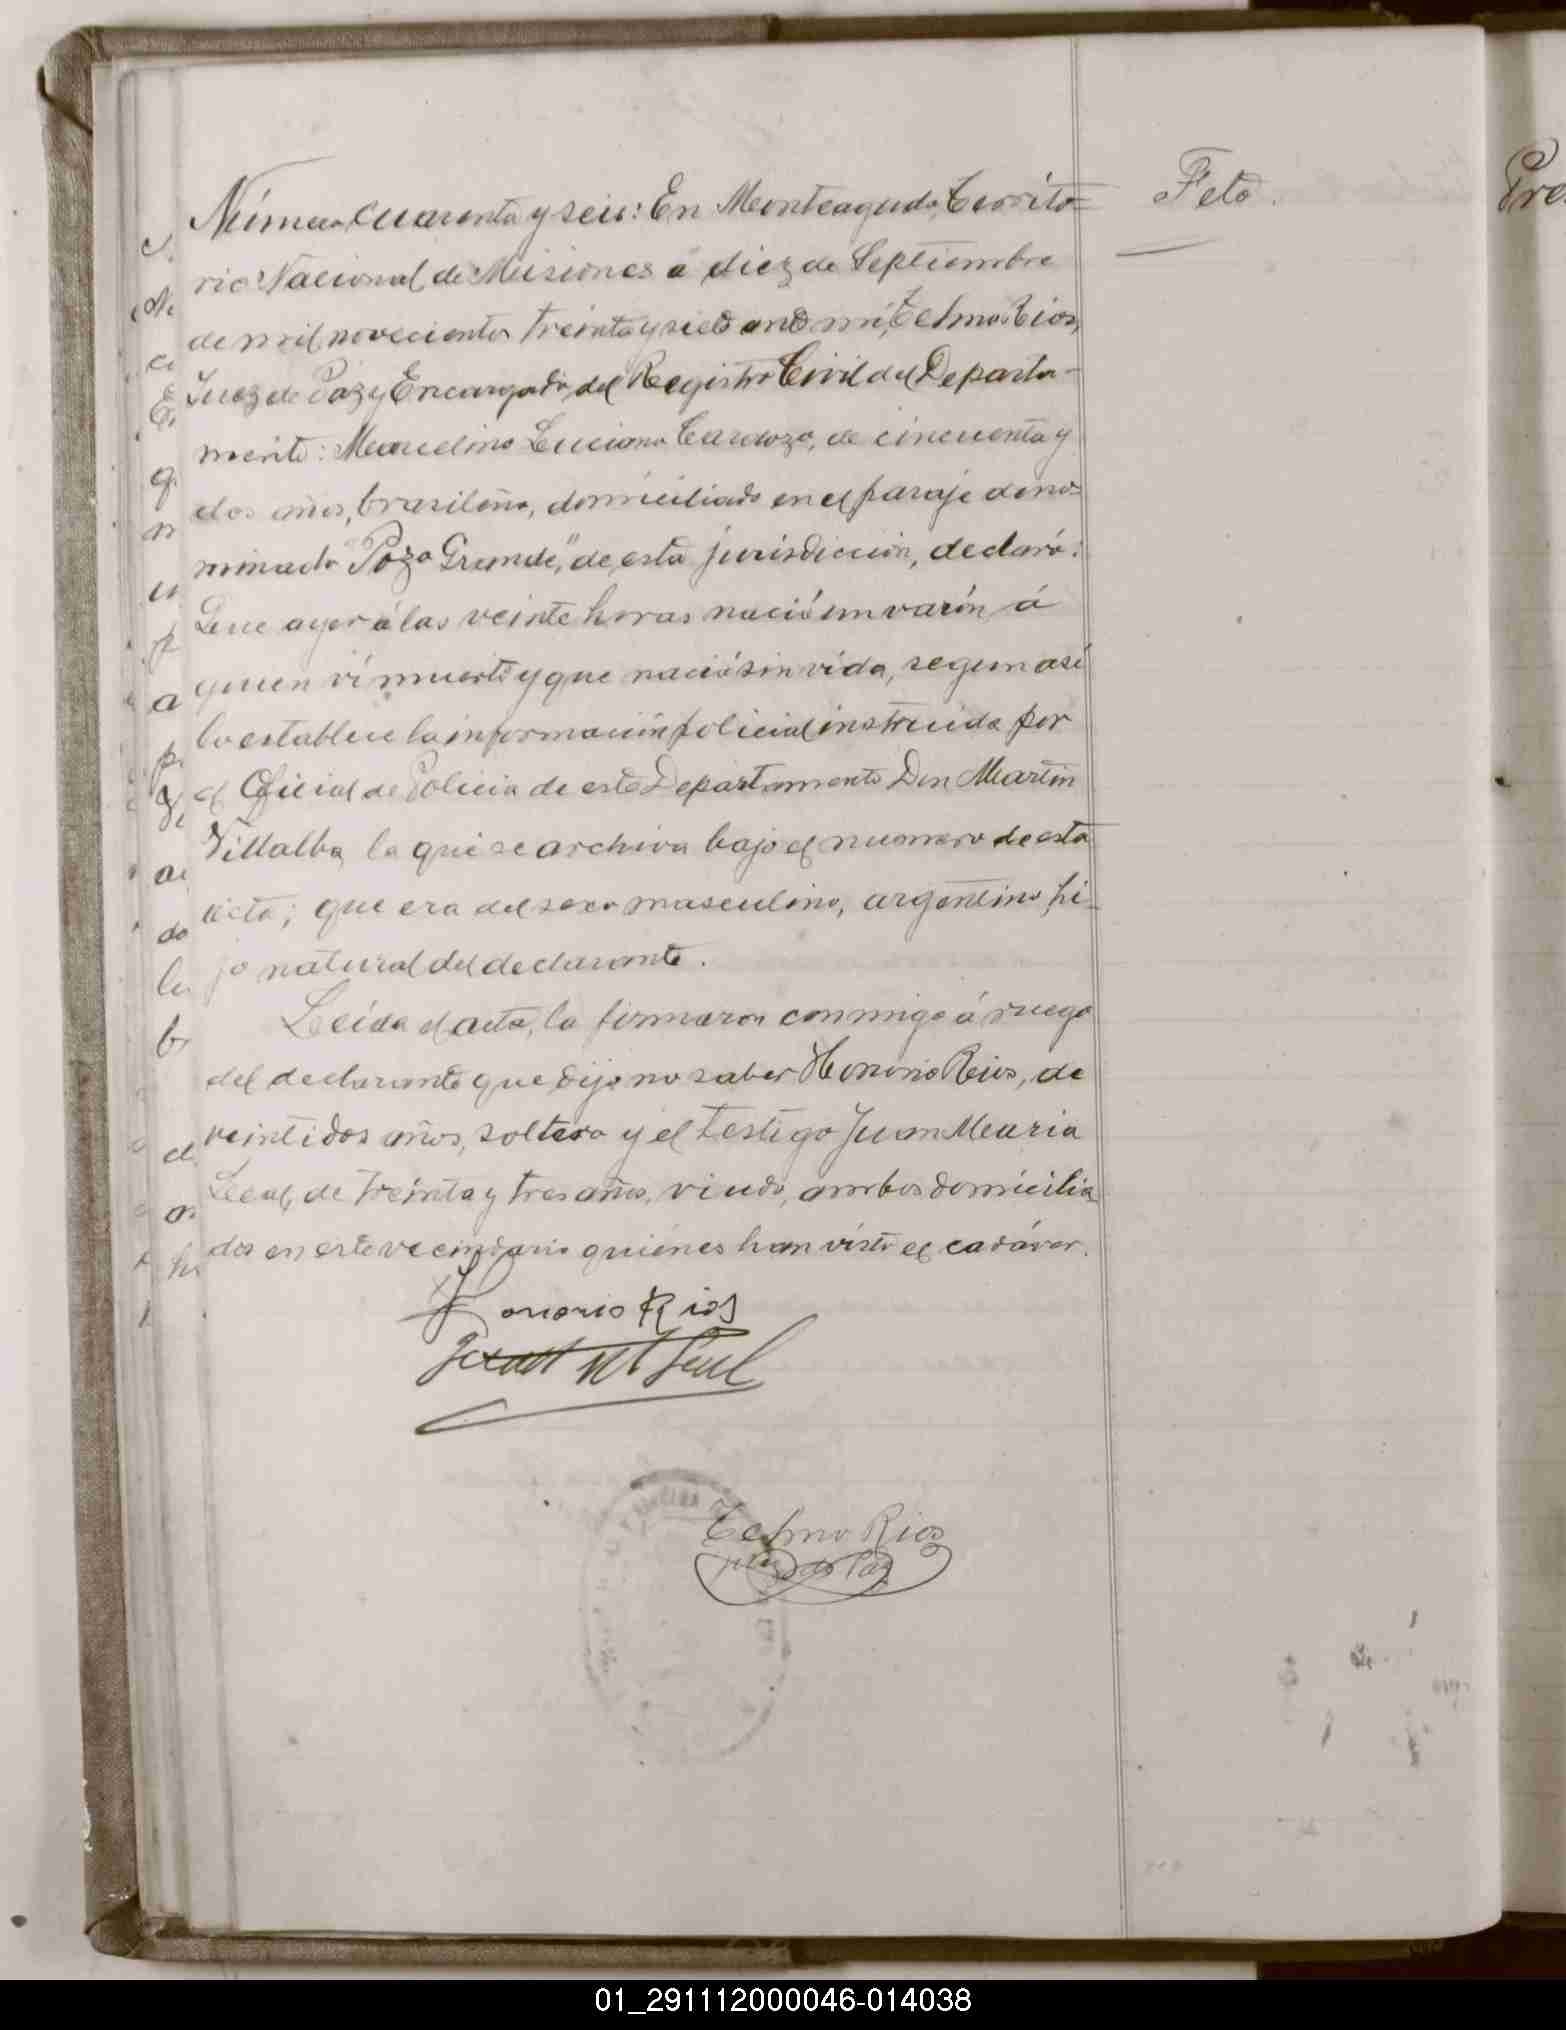 Feto.
Número cuarenta y seis: En Monteagudo, Territo-
rio Nacional de Misiones á diez de Septiembre
de mil novecientos treinta y siete ante mí, Telmo Rios,
Juez de Paz y Encargado del Registro Civil del Departa-
mento: Marcelino Luciano Cardozo, de cincuenta y
dos años, brasileño, domiciliado en el paraje deno-
minado "Pozo Grande," de esta jurisdicción, declaró:
Que ayer á las veinte horas nació un varón á
quien ví muerto y que nació sin vida, segun así
lo establece la información policial instruida por
el Oficial de Policia de este Departamento Don Martin
Villalba, la que se archiva bajo el numero de esta
acta; que era del sexo masculino, argentino, hi-
jo natural del declarante.
Leída el acta, la firmaron conmigo á ruego
del declarante que dijo no saber Honorio Rios, de
veintidos años, soltero y el testigo Juan Maria
Leal, de treinta y tres años, viudo, ambos domicilia
dos en este vecindario quiénes han visto el cadáver.
Honorio Rios
Juan M Leal
Telmo Rios
Juez de Paz
01_291112000046-014038